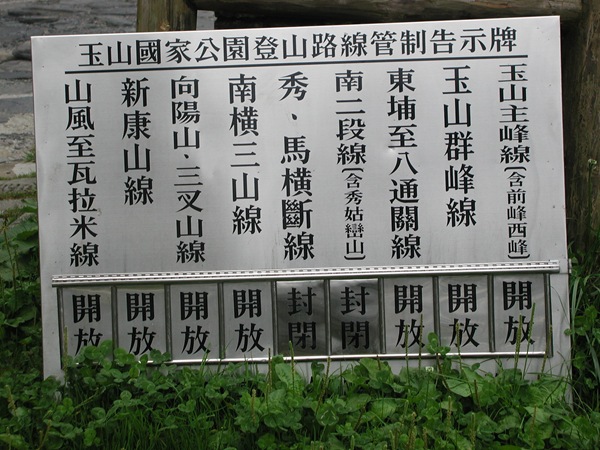 玉山國家公園登山路線管制告示牌
玉山主峰線(含前峰西峰)
玉山群峰線
東埔至八通關線
南二段線(含秀姑巒山)
秀、馬橫斷線
南橫三山線
向陽山、三叉山線
新康山線
山風至瓦拉米線
開放
開放
開放
封閉
封閉
開放
開放
開放
開放